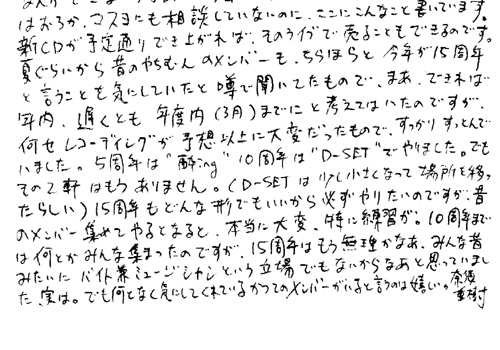 はおろか、マスコにも相談していないのに、ここにこんなこと書いています。
新CDが予定通りでき上がれば、そのライブで売ることもできるのです。
夏ぐらいから昔のやちむんのメンバーも、ちらほらと今年が15周年
と言うことも気にしていたと噂で聞いてたもので、まあ、できれば
年内、遅くとも年度内(3月)までにと考えてはいたのですが、
何せレコーディングが予想以上に大変だったもので、すっかりすっとんで
いました。5周年は"酔ing"10周年は"D-SET"でやりました。でも
その2軒はもうありません。(D-SETは少し小さくなって場所を移っ
たらしい)15周年もどんな形でもいいから必ずやりたいのですが、昔
のメンバー集めてやるとなると、本当に大変、特に練習が。10周年まで
は何とかみんな集まったのですが、15周年はもう無理かなあ、みんな昔
みたいにバイト兼ミュージシャンという立場でもないからなあと思っていまし
た、実は。でも何となく気にしてくれているかつてのメンバーがいると言うのは嬉しい。奈須
重樹